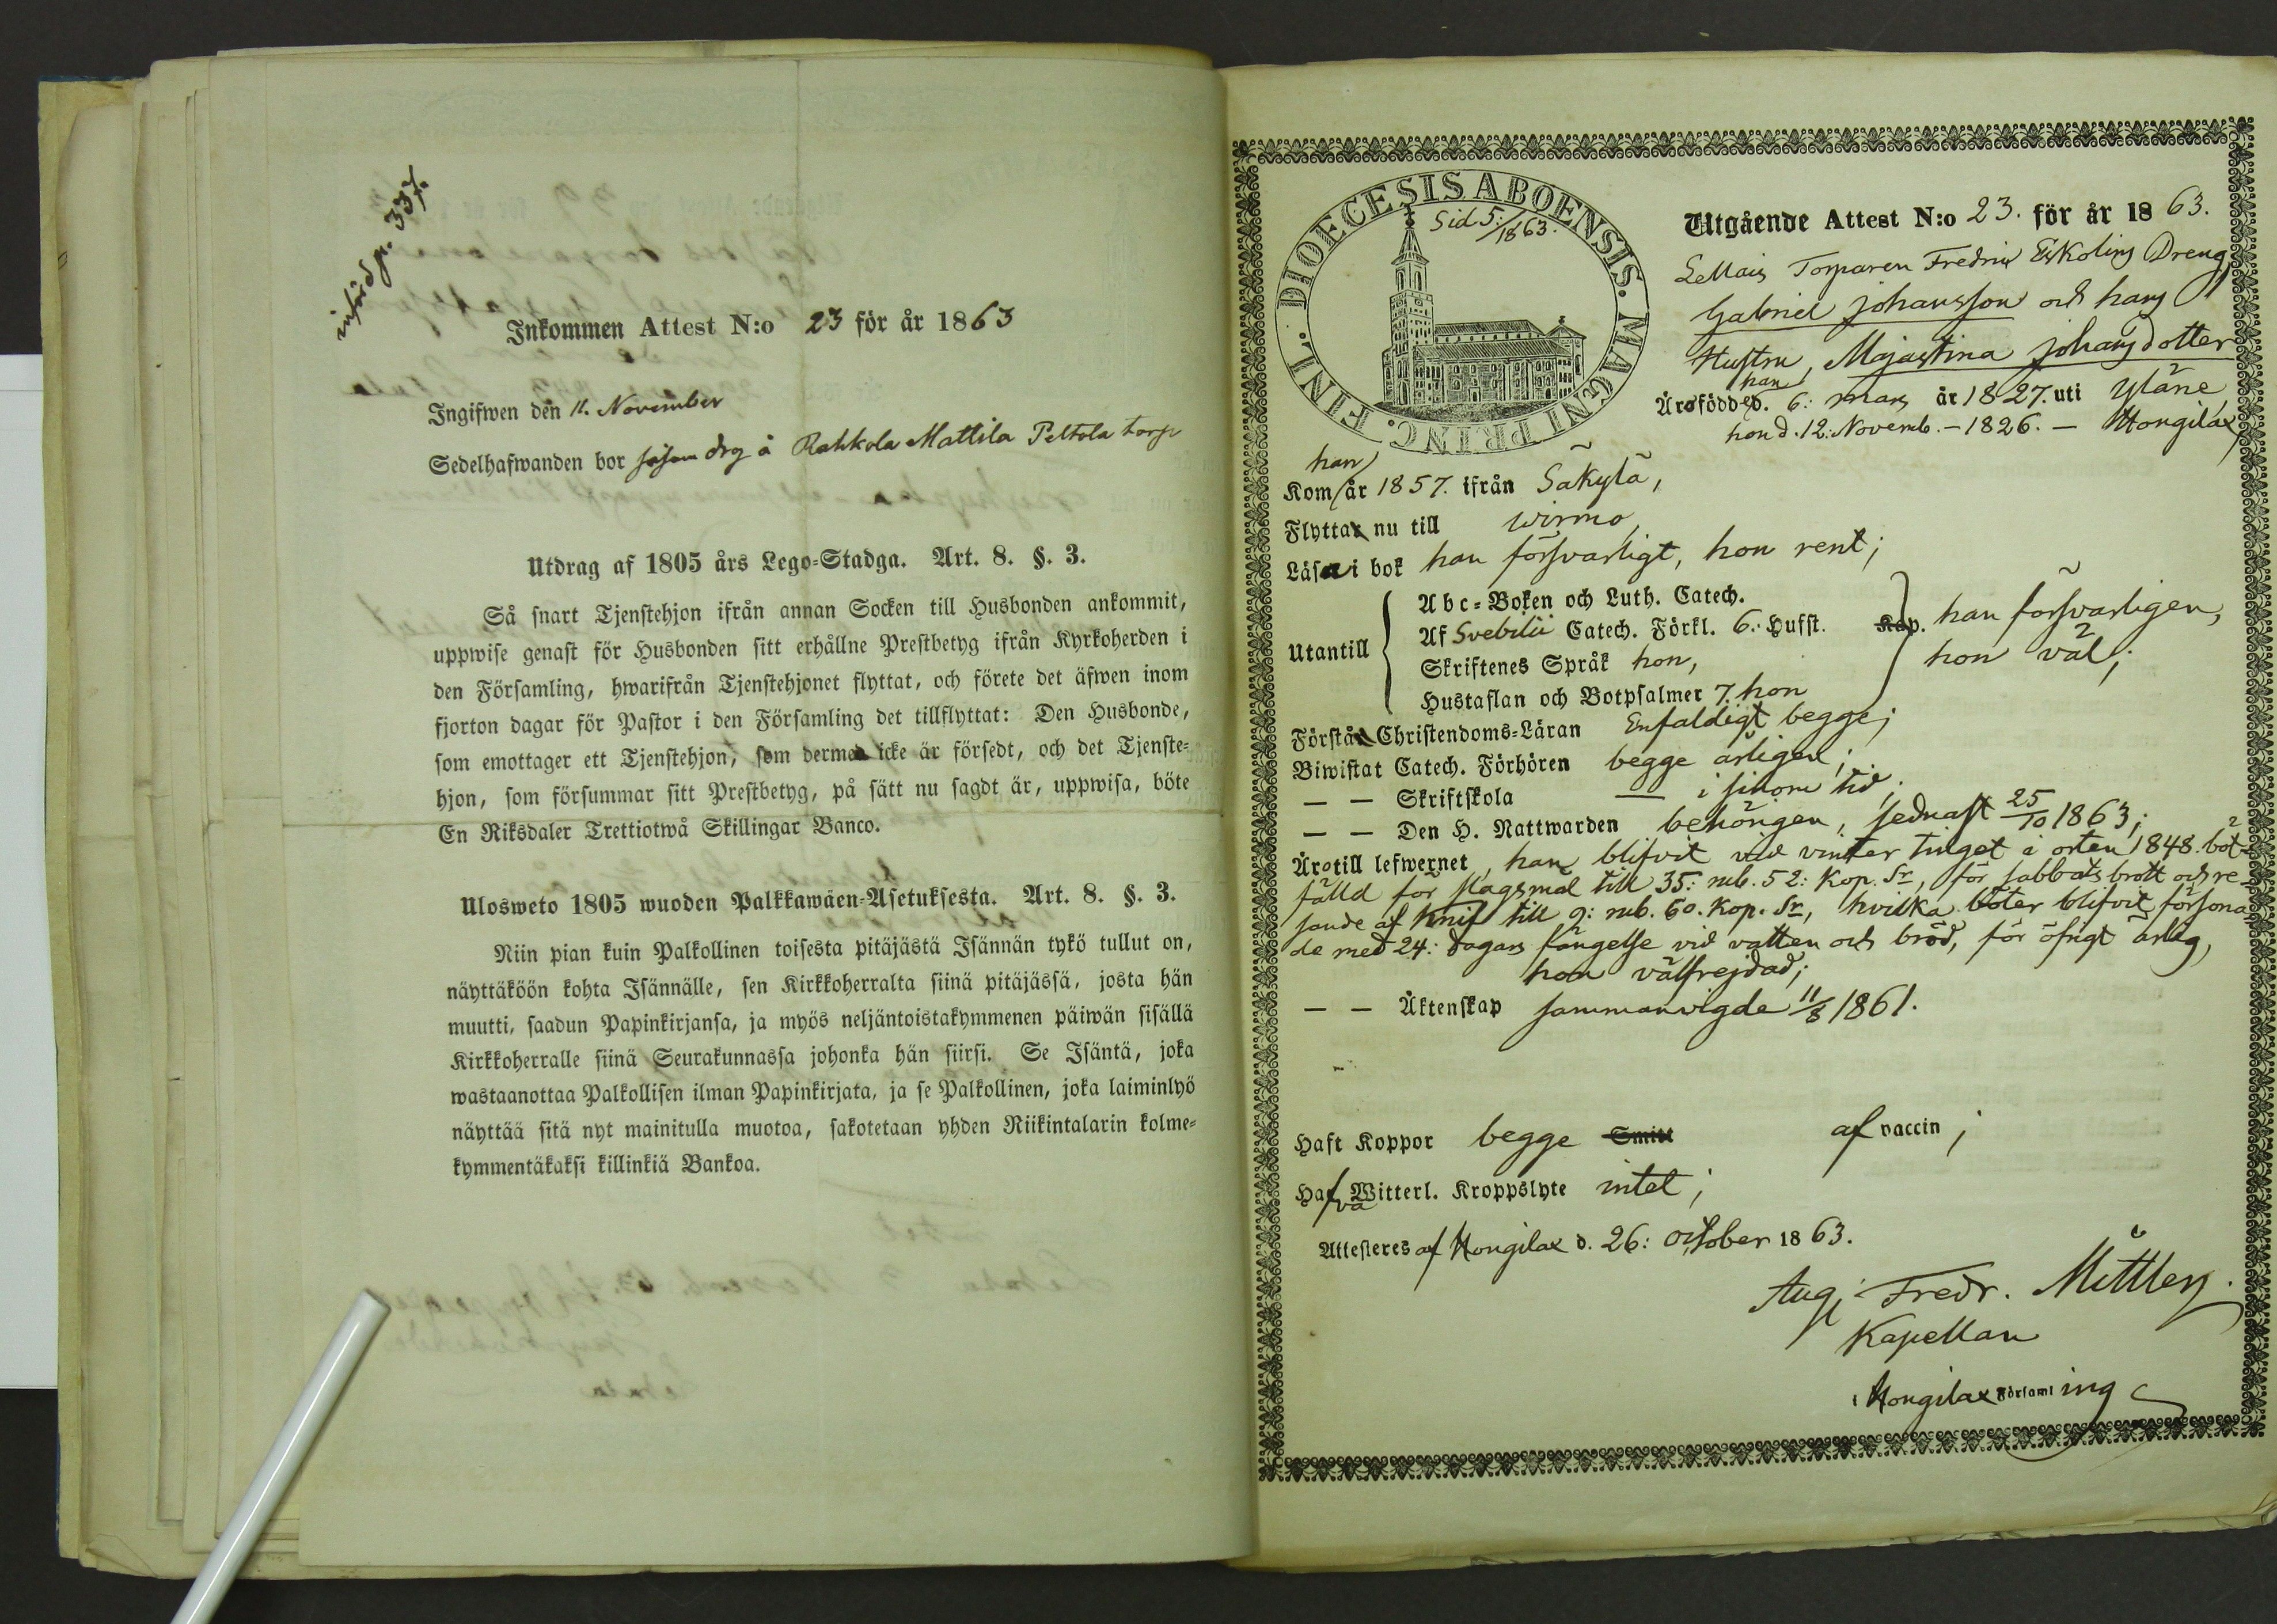 införd p. 337.
Inkommen Attest N:o 23 för år 1863
Ingifwen den 11. November
Sedelhafwanden bor såsom drg å Rahkola Mattila Peltola torp
Utdrag af 1805 års Lego-Stadga. Art. 8. §. 3.
Så snart Tjenstehjon ifrån annan Socken till Husbonden ankommit,
uppwise genast för Husbonden sitt erhållne Prestbetyg ifrån Kyrkoherden i
den Församling, hwarifrån Tjenstehjonet flyttat, och förete det äfwen inom
fjorton dagar för Pastor i den Församling det tillflyttat: Den Husbonde,
som emottager ett Tjenstehjon, som dermed icke är försedt, och det Tjenste-
hjon, som försummar sitt Prestbetyg, på sätt nu sagdt är, uppwisa, böte
En Riksdaler Trettiotwå Skillingar Banco.
Ulosweto 1805 wuoden Palkkawäen-Asetuksesta. Art. 8. §. 3.
Niin pian kuin Palkollinen toisesta pitäjästä Isännän tykö tullut on,
näyttäköön kohta Isännälle, sen Kirkkoherralta siinä pitäjässä, josta hän
muutti, saadun Papinkirjansa, ja myös neljäntoistakymmenen päiwän sisällä
Kirkkoherralle siinä Seurakunnassa johonka hän siirsi. Se Isäntä, joka
wastaanottaa Palkollisen ilman Papinkirjata, ja se Palkollinen, joka laiminlyö
näyttää sitä nyt mainitulla muotoa, sakotetaan yhden Riikintalarin kolme-
kymmentäkaksi killinkiä Bankoa.
DIOECESIS ABOENSIS. MAGNI PRINC. FINL.
Sid 5:/1863.
Utgående Attest N:o 23. för år 1863.
Lellais Torparen Fredrik Eskolins Dreng
Gabriel Johansson och hans
Hustru, Majastina Johansdotter
Äro födde han d. 6: mars år 1827. uti Yläne
hon d. 12: Novemb. - 1826. - Hongilax,
Kom han år 1857. ifrån Säkylä,
Flytta nu till Wirmo,
Läsa i bok han försvarligt, hon rent;
Utantill
Abc-Boken och Luth. Catech.
Af Svebilii Catech. Förkl. 6: Hufst. Kap. han försvarligen,
Skriftenes Språk hon, hon väl;
Hustaflan och Botpsalmer 7. hon
Förstå Christendoms-Läran Enfaldigt begge;
Biwistat Catech. Förhören begge årligen;
— — Skriftskola — i sinom tid,
— — Den H. Nattwarden behörigen, sednast 25/10 1863;
Äro till lefwernet, han blifvit vid vinter tinget i orten 1848. böt-
fälld för slagsmål till 35: rub. 52: Kop. Sr, för sabbats brott och re-
sande af Knif till 9: rub. 60. Kop. Sr, hvilka böter blifvit försona-
de med 24: dagars fängelse vid vatten och bröd, för öfrigt ärlig,
hon välfrejdad;
— — Äktenskap sammanvigde 11/8 1861.
Haft Koppor begge Smitt af vaccin;
Hafva Witterl. Kroppslyte intet;
Attesteres af Hongilax d. 26: October 1863.
Aug. Fredr. Mittler
Kapellan
i Hongilax Församling